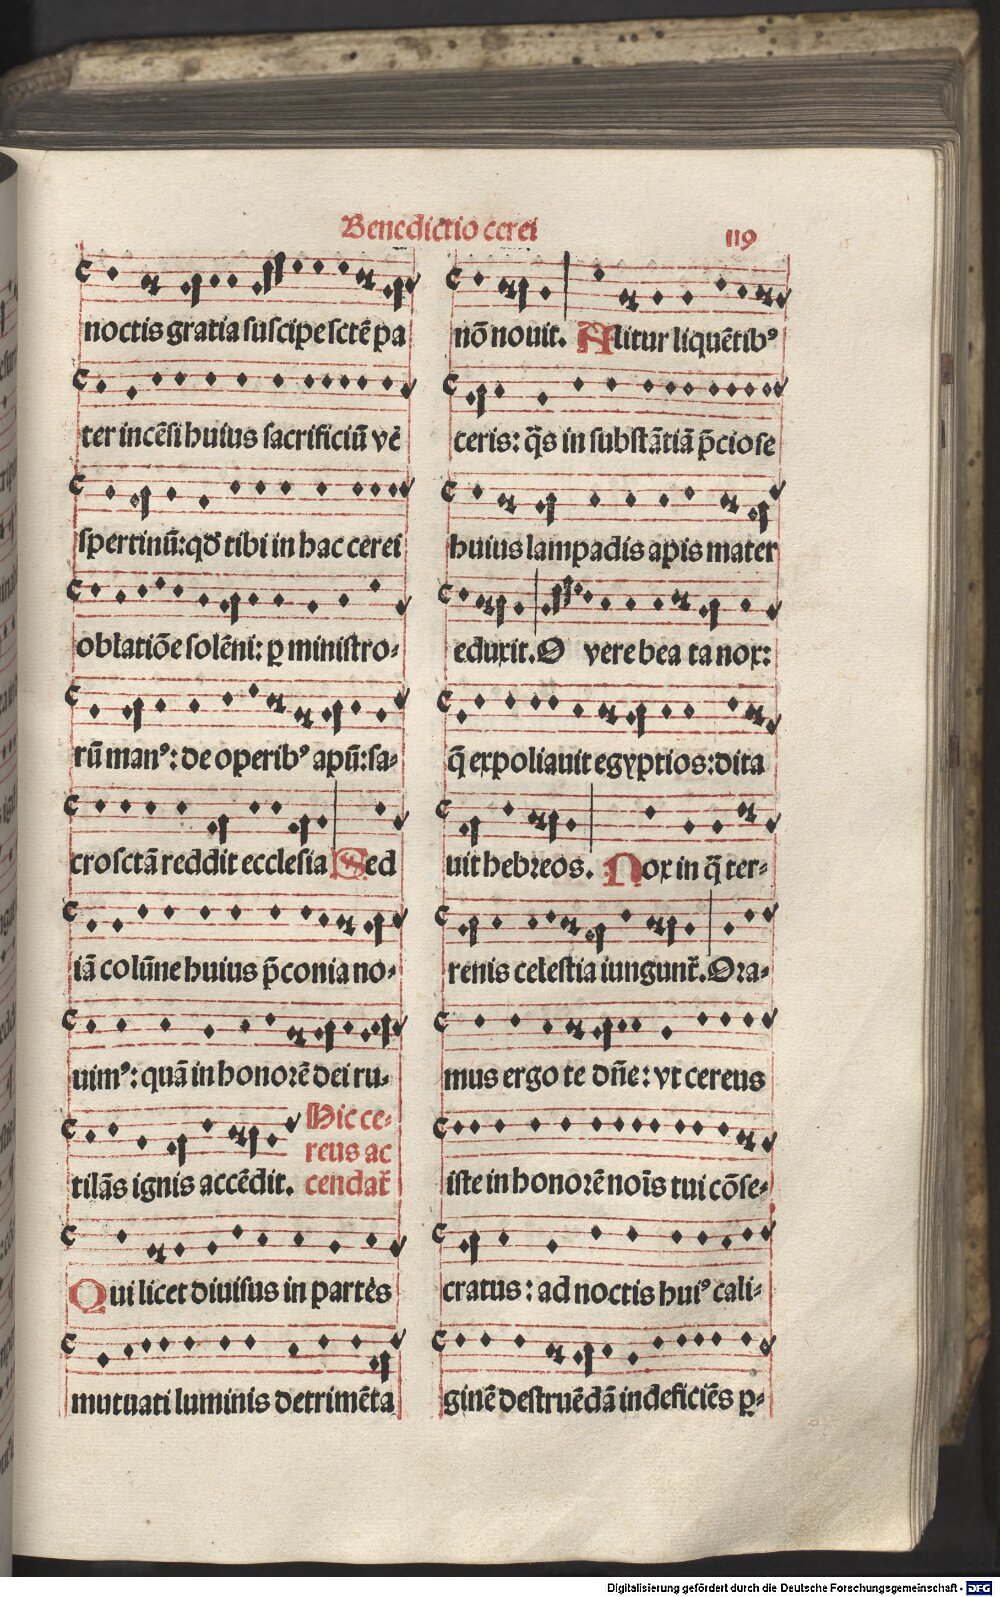 Benedictio cerei
119
noctis gratia suscipe sctẽ pa
ter incẽsi huius sacrificiũ ve
spertinũ: qđ tibi in hac cerei
oblatiõe solẽni: ꝑ ministro-
rũ manꝰ: de operibꝰ apũ: sa-
crosctã reddit ecclesia Sed
iã colũne huius p̃conia no-
uimꝰ: quã in honorẽ dei ru-
tilãs ignis accẽdit.
Hic ce-
reus ac
cendat᷑
Qui licet diuisus in partes
mutuati luminis detrimẽta
nõ nouit. Alitur liquẽtibꝰ
ceris: q̃s in substãtiã p̃ciose
huius lampadis apis mater
eduxit. O vere bea ta nox:
q̃ expoliauit egyptios: dita
uit hebreos. Nox in q̃ ter-
renis celestia iungunt᷑. Ora-
mus ergo te dñe: vt cereus
iste in honorẽ nois̃ tui cõse-
cratus: ad noctis huiꝰ cali-
ginẽ destruẽdã indeficiẽs ꝑ-
Digitalisierung gefördert durch die Deutsche Forschungsgemeinschaft - DFG